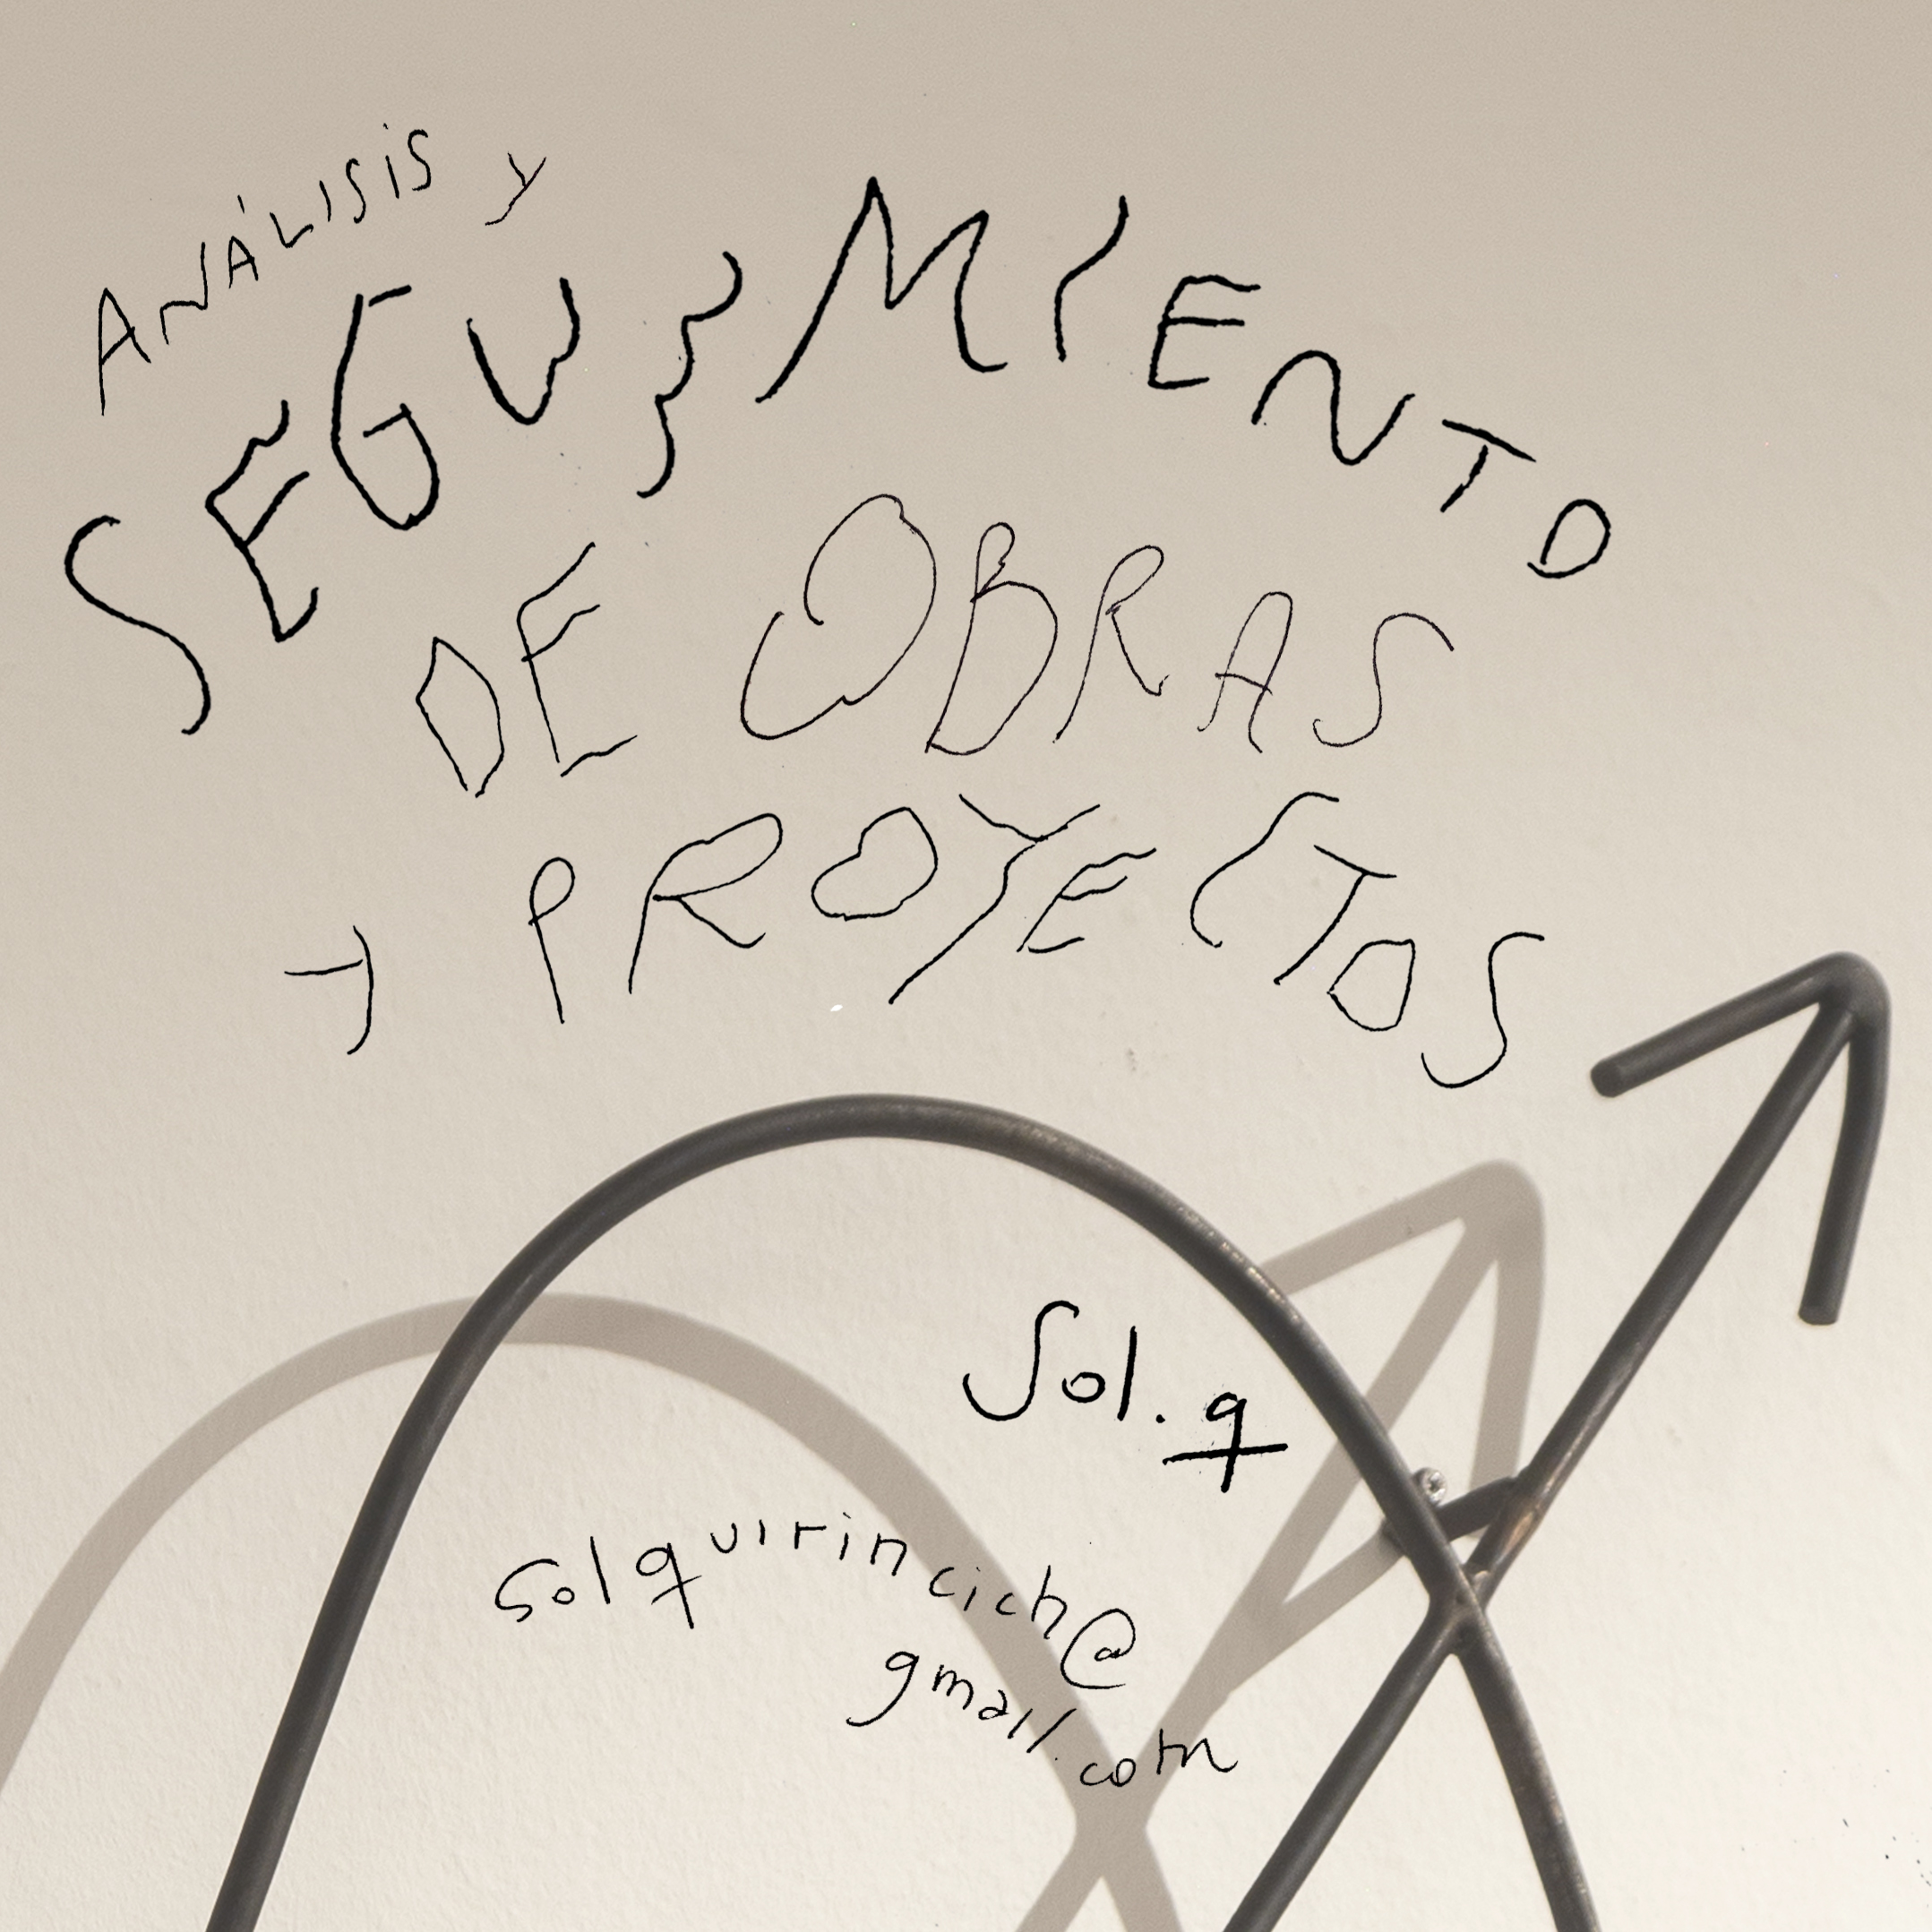 ANÁLISIS y
SEGUIMIENTO
DE OBRAS
Y PROYECTOS
Sol.q
solquirincich@
gmail.com